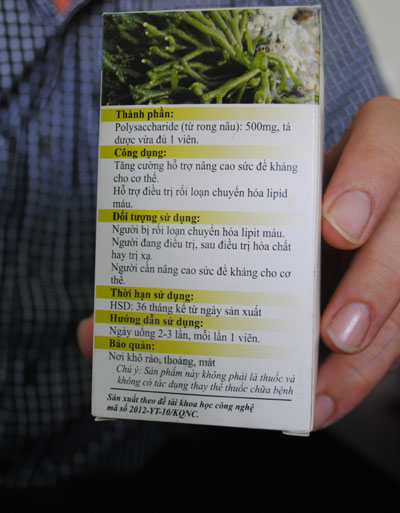 Thành phần:
Polysaccharide (từ rong nâu): 500mg, tá
dược vừa đủ 1 viên.
Công dụng:
Tăng cường hỗ trợ nâng cao sức đề kháng
cho cơ thể.
Hỗ trợ điều trị rối loạn chuyển hóa lipid
máu.
Đối tượng sử dụng:
Người bị rối loạn chuyển hóa lipit máu.
Người đang điều trị, sau điều trị hóa chất
hay trị xạ.
Người cần nâng cao sức đề kháng cho cơ
thể.
Thời hạn sử dụng:
HSD: 36 tháng kể từ ngày sản xuất
Hướng dẫn sử dụng:
Ngày uống 2-3 lần, mỗi lần 1 viên.
Bảo quản:
Nơi khô ráo, thoáng, mát
Chú ý: Sản phẩm này không phải là thuốc và
không có tác dụng thay thế thuốc chữa bệnh
Sản xuất theo đề tài khoa học công nghệ
mã số 2012-YT-10/KQNC.